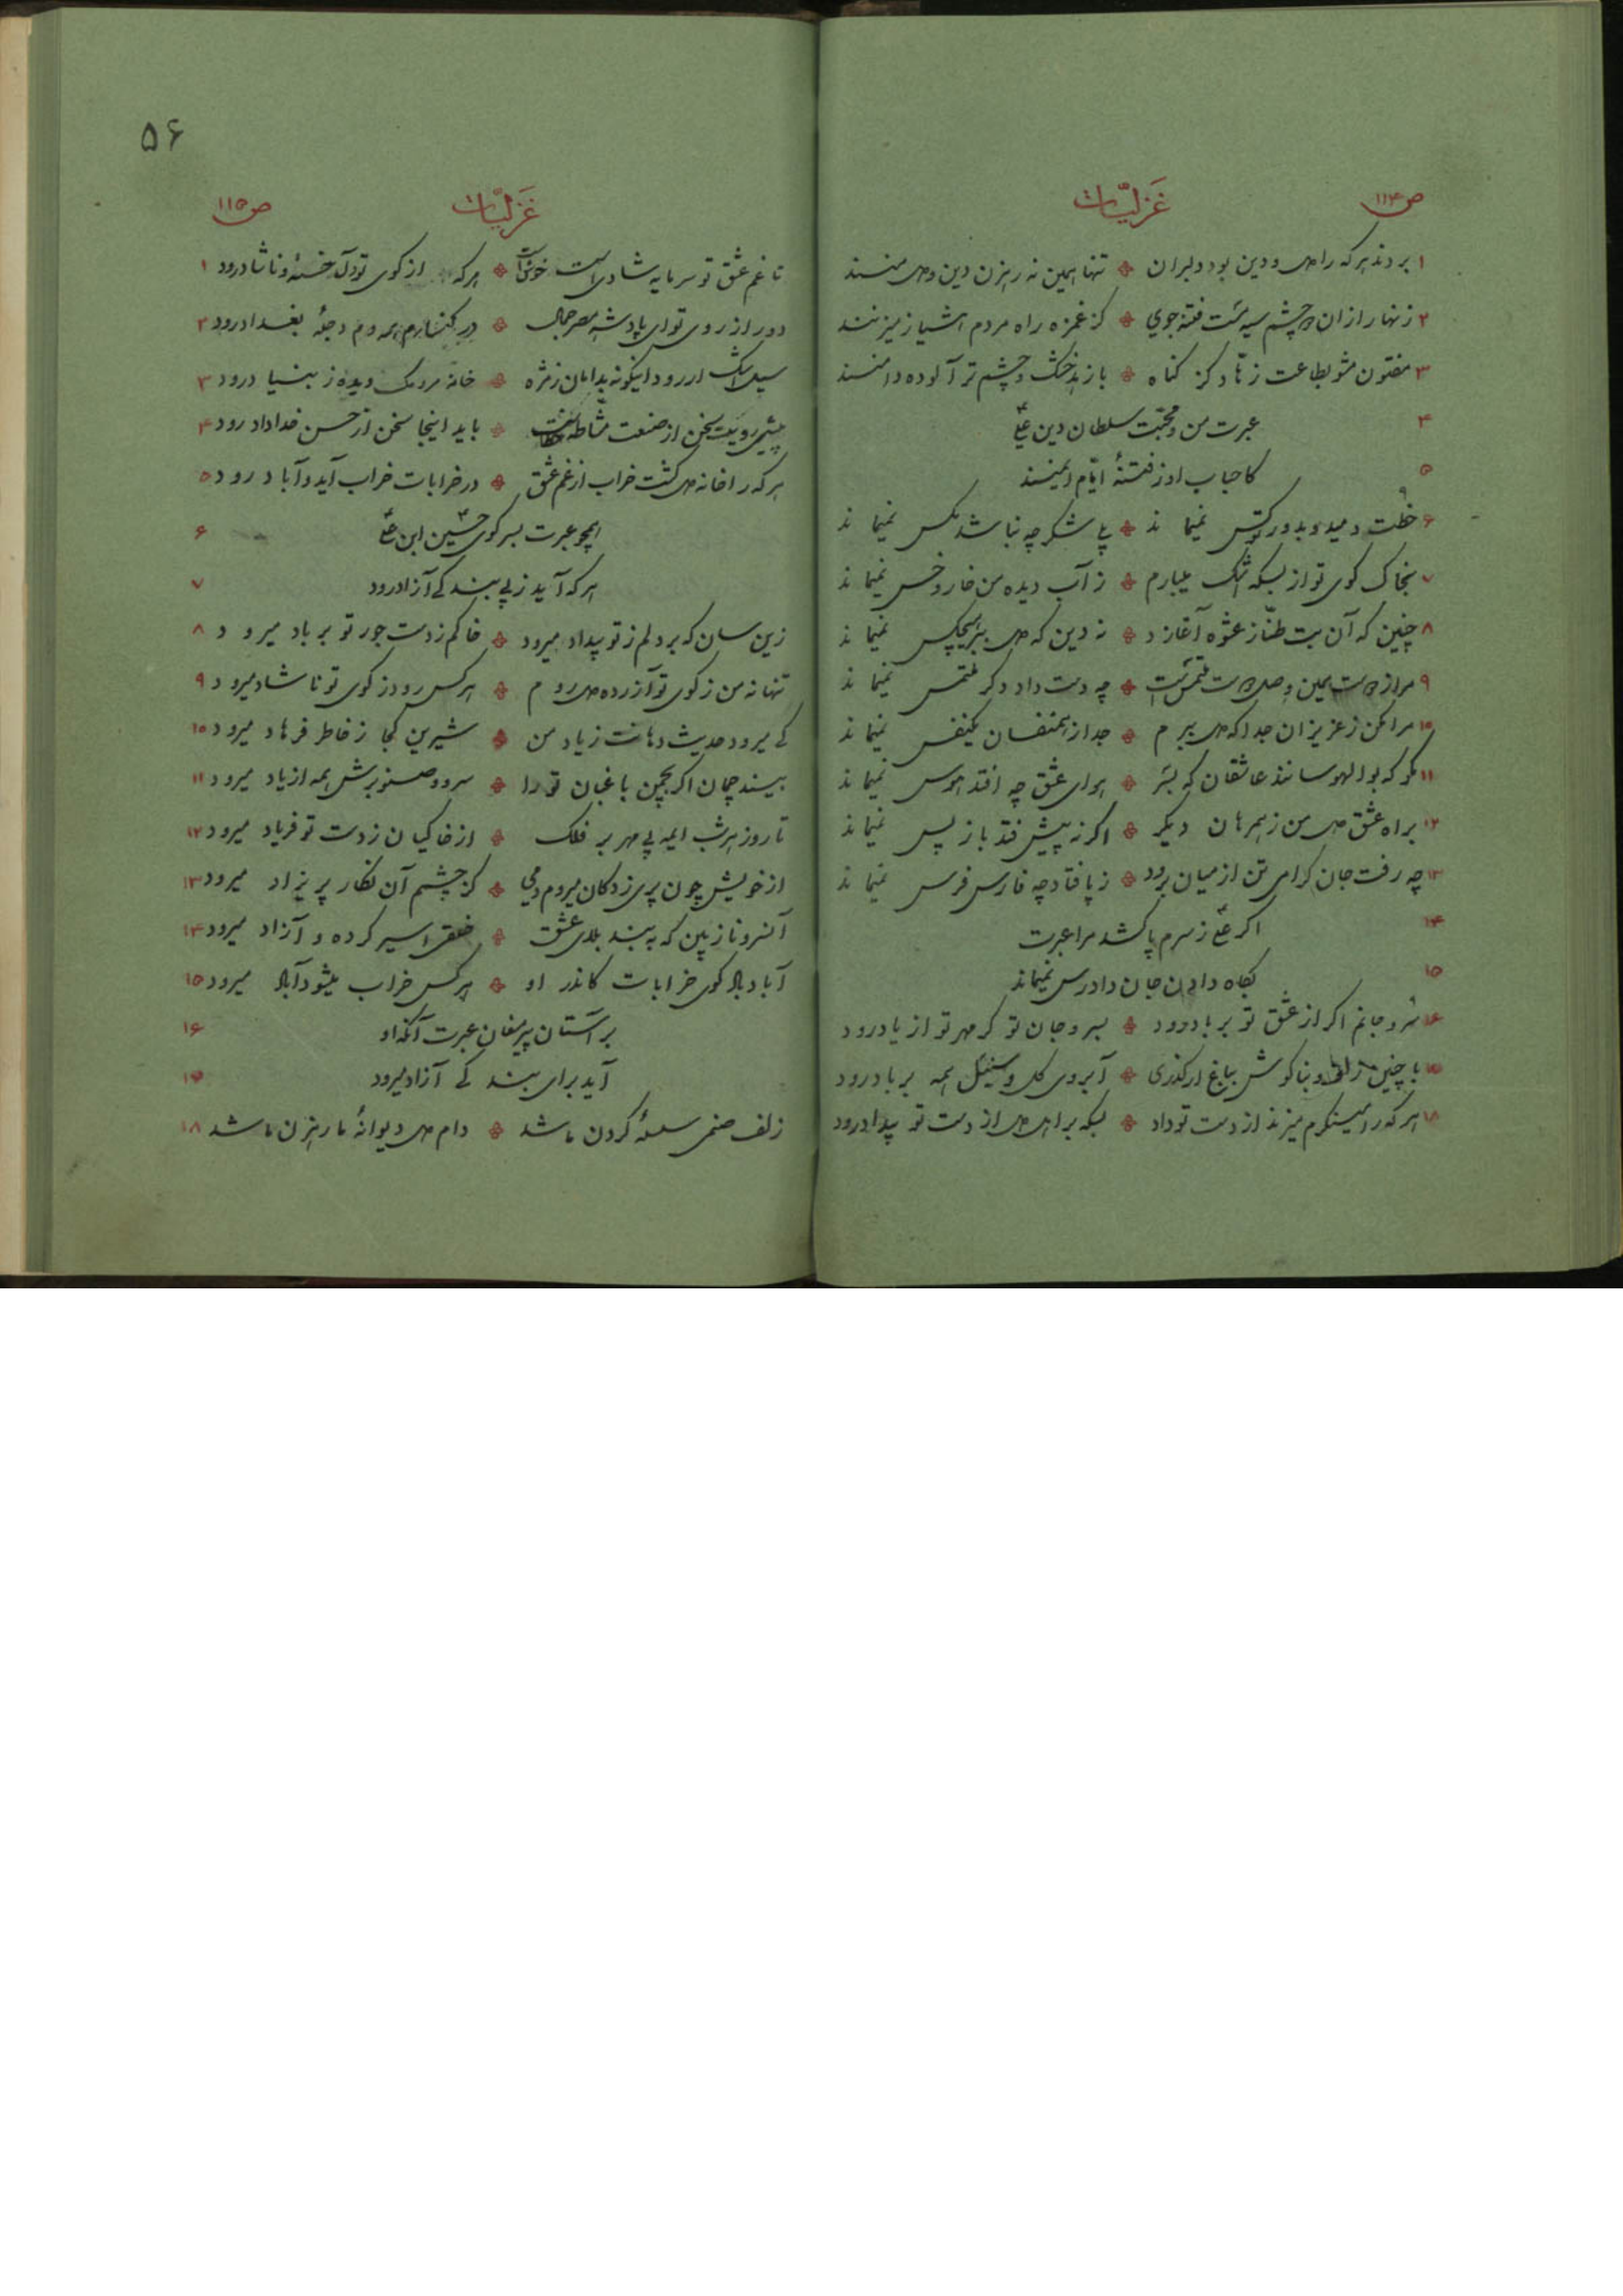 ص ۱۱۴ غَزلیّات
۱ بردند هرکه را دل و دین بود دلبران ❖ تنها همین نه رهزن دین و دل منند
۲ زنهار ازان دو چشم سیه مست فتنه جوی ❖ کز غمزه راه مردم هشیار میزنند
۳ مفتون مشو بطاعت زهّاد کز گناه ❖ با زهد خشک و چشم تر آلوده دامنند
۴ عبرت من و محبّت سلطان دین علیؑ
۵ کاحباب او ز فتنهٔ ایّام ایمنند
۶ خطت دمید و بدور تو کس نمیماند ❖ پی شکر چه نباشد مگس نمیماند
۷ بخاک کوی تو از بسکه اشک میبارم ❖ ز آب دیده من خار و خس نمیماند
۸ چنین که آن بت طنّاز عشوه آغازد ❖ نه دین که دل ببر هیچکس نمیماند
۹ مراز دوست همین وصل دوست ملتمس است ❖ چه دست داد دگر ملتمس نمیماند
۱۰ مرا مکن ز عزیزان جدا که میمیرم ❖ جدا ز همنفسان یکنفس نمیماند
۱۱ مگو که بوالهوسانند عاشقان که بسر ❖ هوای عشق چه افتد هوس نمیماند
۱۲ براه عشق دل من ز همرهان دیگر ❖ اگر نه پیش فتد باز پس نمیماند
۱۳ چه رفت جان گرامی تن از میان برود ❖ ز پا فتاد چه فارس فرس نمیماند
۱۴ اگر علیؑ ز سرم پا کشد مرا عبرت
۱۵ بگاه دادن جان دادرس نمیماند
۱۶ سر و جانم اگر از عشق تو بر باد رود ❖ بسر و جان تو گر مهر تو از یاد رود
۱۷ با چنین زلف و بناگوش بباغ ار گذری ❖ آبروی گل و سنبل همه بر باد رود
۱۸ هر که را مینگرم میزند از دست تو داد ❖ بسکه بر اهل دل از دست تو بیداد رود
۵۶
غَزلیّات ص ۱۱۵
تا غم عشق تو سرمایه شادی است خوش است ❖ هرکه از کوی تو دل خسته و ناشاد رود ۱
دور از روی تو ای پادشه مصر جمال ❖ در کنارم همه دم دجلهٔ بغداد رود ۲
سیل اشک ار رود اینگونه بدامان ز مژه ❖ خانه مردمک دیده ز بنیاد رود ۳
پیش رویت سخن از صنعت مشّاطه خطاست ❖ باید اینجا سخن از حسن خداداد رود ۴
هرکه را خانه دل گشت خراب از غم عشق ❖ در خرابات خراب آید و آباد رود ۵
همچو عبرت بسر کوی حسینؑ ابن علیؑ ۶
هرکه آید ز پی بند کی آزاد رود ۷
زین سان که بر دلم ز تو بیداد میرود ❖ خاکم ز دست جور تو بر باد میرود ۸
تنها نه من ز کوی تو آزرده میروم ❖ هرکس رود ز کوی تو ناشاد میرود ۹
کی میرود حدیث دهانت ز یاد من ❖ شیرین کجا ز خاطر فرهاد میرود ۱۰
بیند چمان اگر بچمن باغبان تو را ❖ سرو و صنوبرش همه از یاد میرود ۱۱
تا روز هر شب ایمه بی مهر بر فلک ❖ از خاکیان ز دست تو فریاد میرود ۱۲
از خویش چون پری زدگان میروم دمی ❖ کز چشمم آن نگار پریزاد میرود ۱۳
آنسرو ناز بین که به بند بلای عشق ❖ خلقی اسیر کرده و آزاد میرود ۱۴
آباد باد کوی خرابات کاندر او ❖ هرکس خراب میشود آباد میرود ۱۵
بر آستان پیر مغان عبرت آنکه او ۱۶
آید برای بندگی آزاد میرود ۱۷
زلف صنمی سلسلهٔ گردن ما شد ❖ دام دل دیوانهٔ ما رهزن ما شد ۱۸